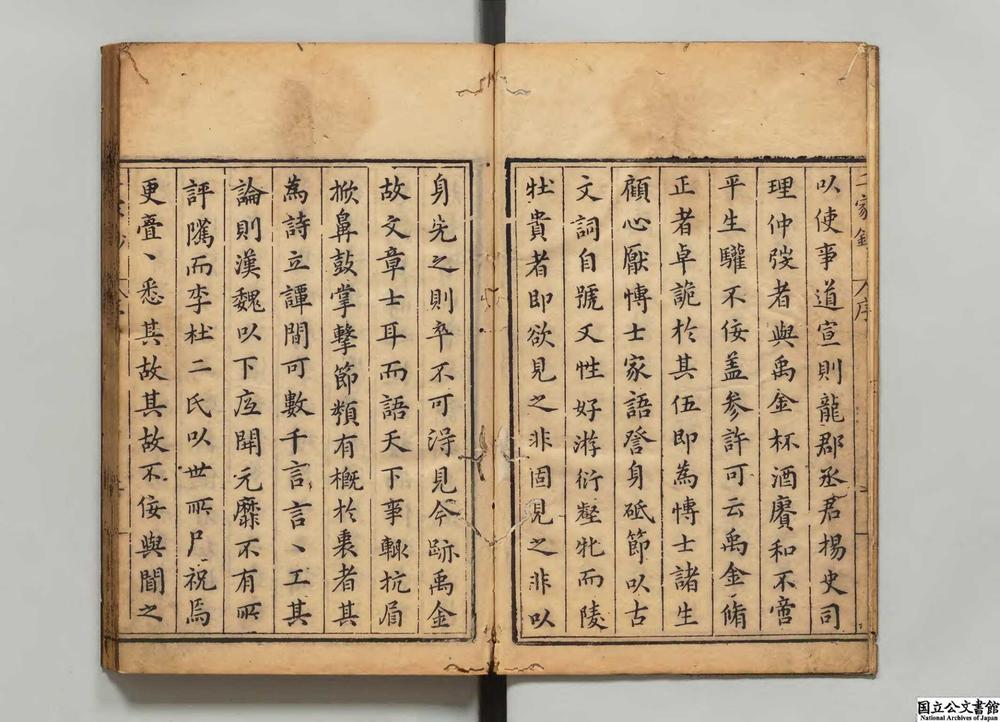 二家鈔
序
以使事道宣則龍郡丞君楊史司
理仲弢者與禹金杯酒賡和不啻
平生驩不佞盖參許可云禹金脩
正者卓詭於其伍即為愽士諸生
顧心厭愽士家語詧身砥節以古
文詞自號又性好游衍壑牝而陵
牡貴者即欲見之非固見之非以
身先之則卒不可淂見今跡禹金
故文章士耳而語天下事輙抗眉
掀鼻鼓掌擊節類有概於衷者其
為詩立譚間可數千言言丶工其
論則漢魏以下迄開元靡不有所
評騭而李杜二氏以世所尸祝焉
更亹丶悉其故其故不佞與聞之
国立公文書館
National Archives of Japan